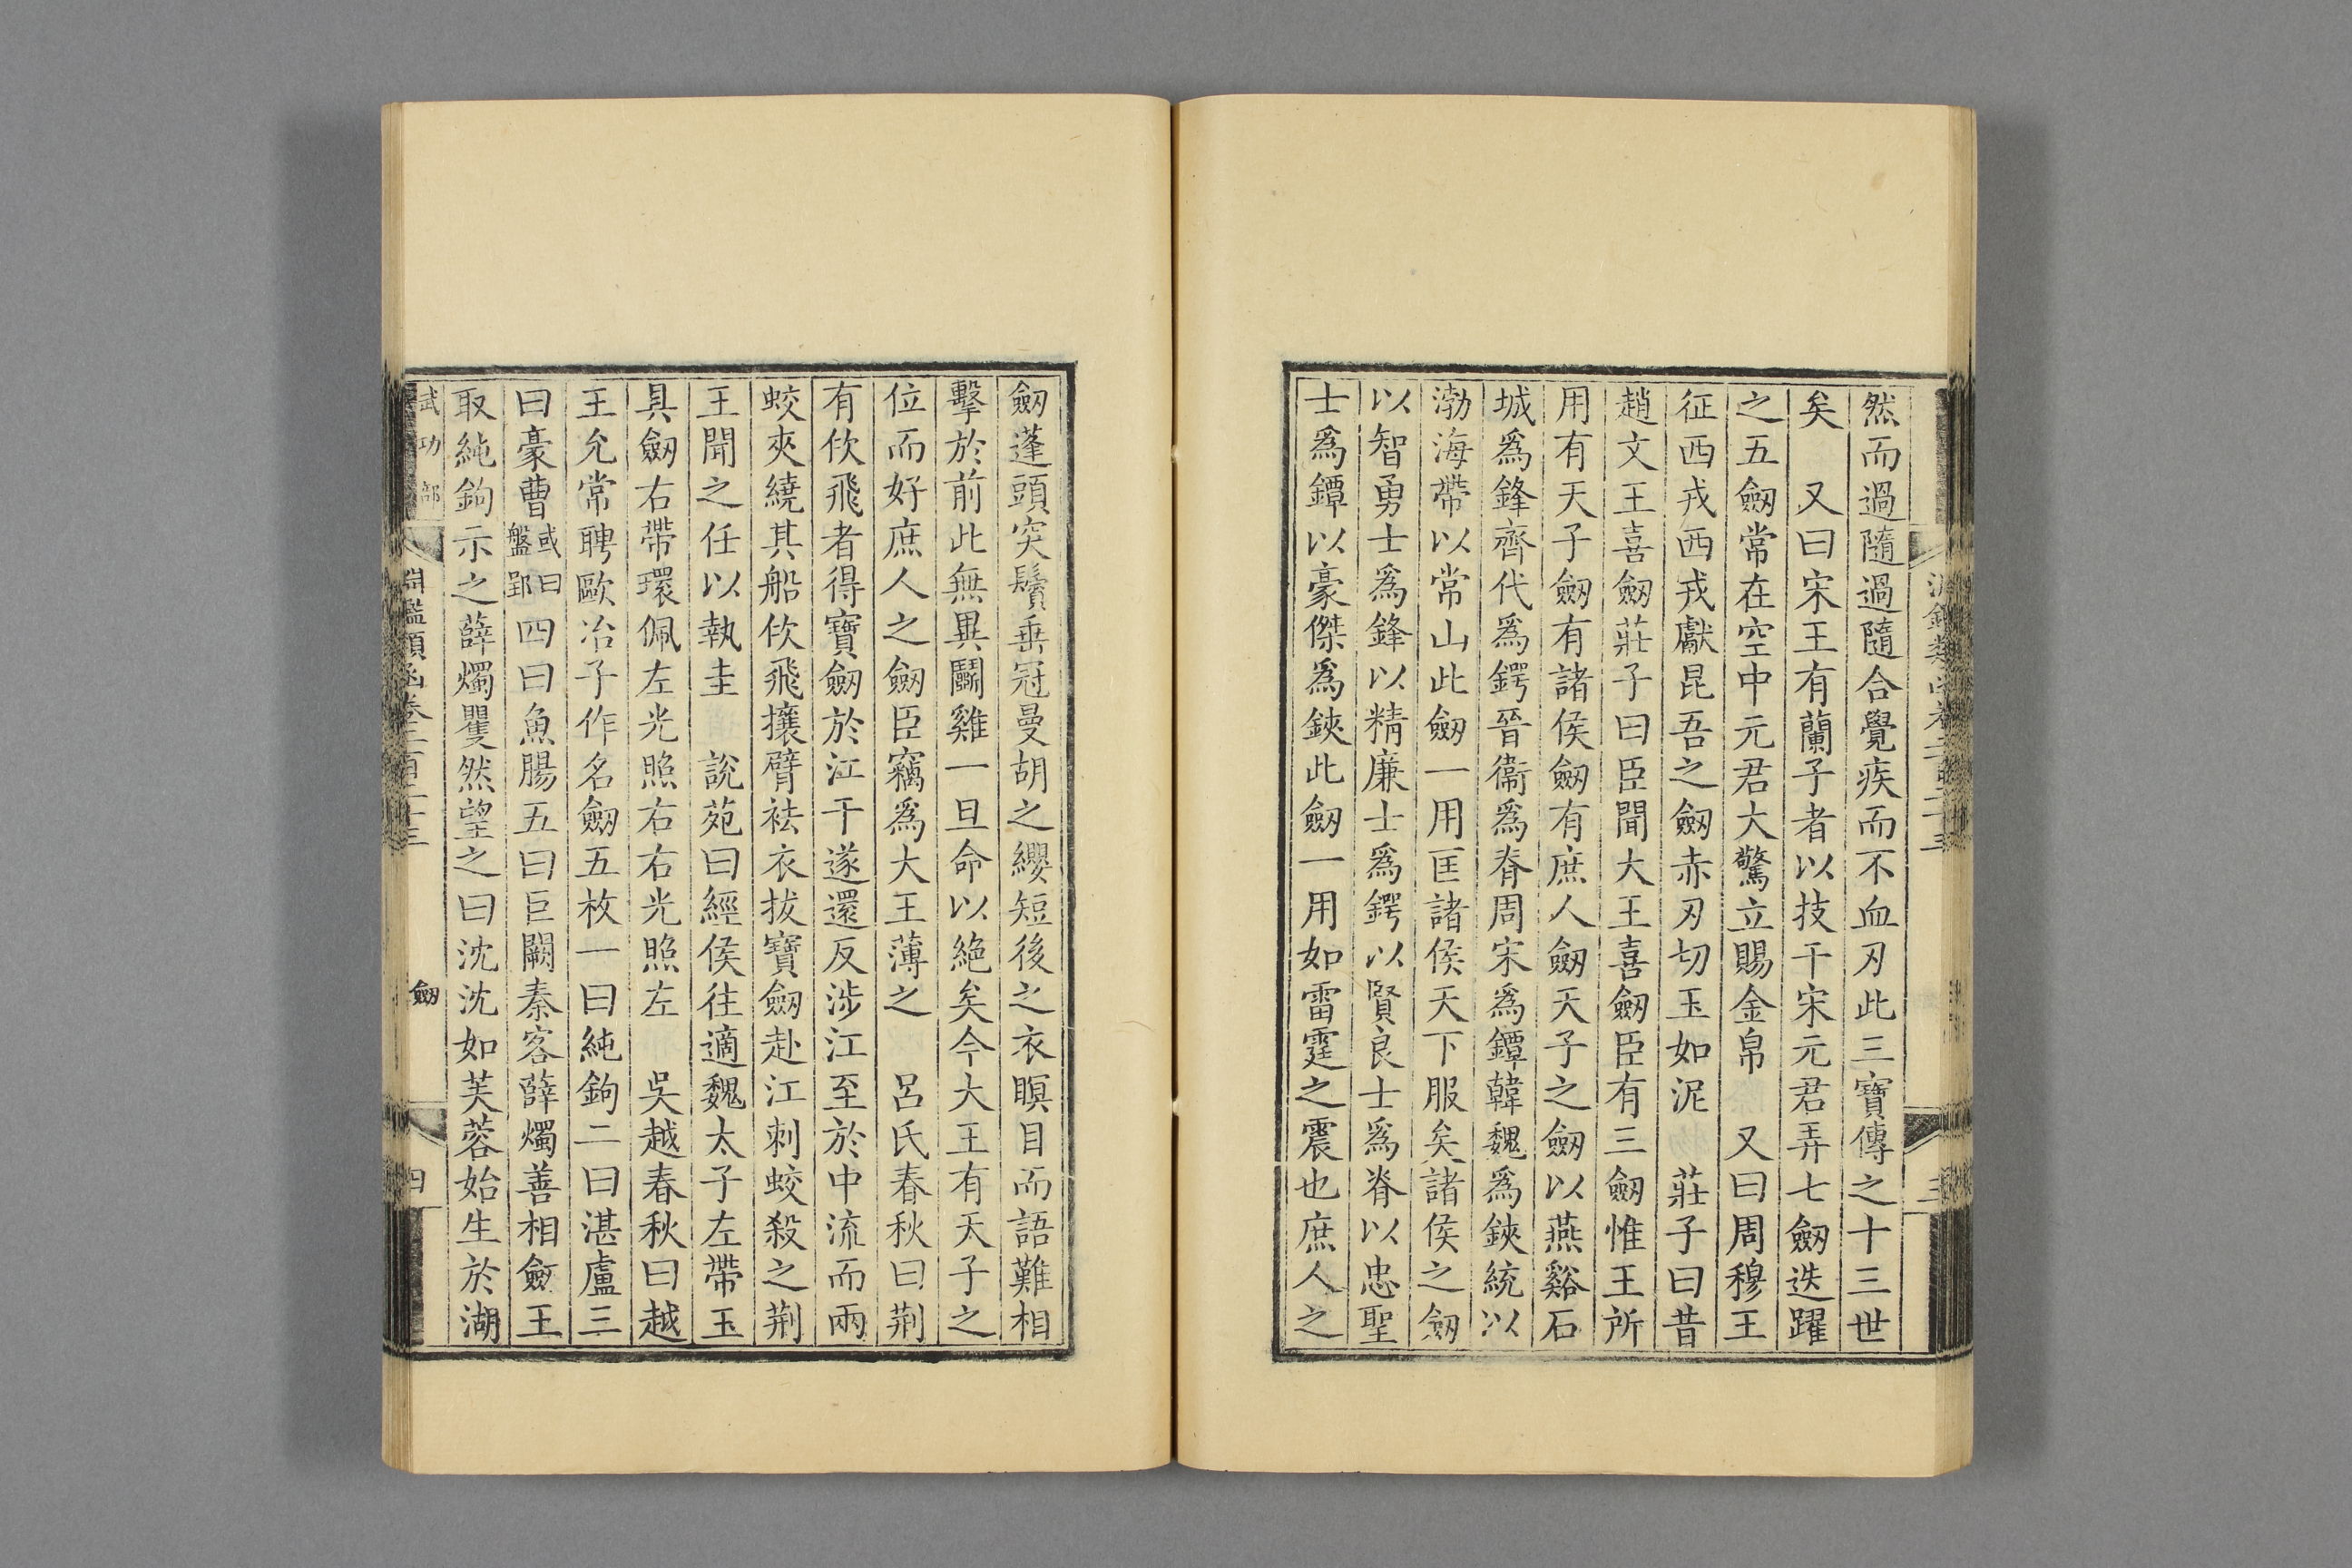 然而過隨過隨合覺疾而不血刃此三寶傳之十三世
矣　又曰宋王有蘭子者以技干宋元君弄七劒迭躍
之五劒常在空中元君大驚立賜金帛　又曰周穆王
征西戎西戎獻昆吾之劒赤刃切玉如泥　莊子曰昔
趙文王喜劒莊子曰臣聞大王喜劒臣有三劒惟王所
用有天子劒有諸侯劒有庶人劒天子之劒以燕谿石
城爲鋒齊代爲鍔晉衞爲脊周宋爲鐔韓魏爲鋏統以
渤海帶以常山此劒一用匡諸侯天下服矣諸侯之劒
以智勇士爲鋒以精廉士爲鍔以賢良士爲脊以忠聖
士爲鐔以豪傑爲鋏此劒一用如雷霆之震也庶人之
劒蓬頭突鬢垂冠曼胡之纓短後之衣瞑目而語難相
擊於前此無異鬬雞一旦命以絶矣今大王有天子之
位而好庶人之劒臣竊爲大王薄之　呂氏春秋曰荆
有佽飛者得寶劒於江干遂還反涉江至於中流而兩
蛟夾繞其船佽飛攘臂袪衣拔寶劒赴江刺蛟殺之荆
王聞之任以執圭　說苑曰經侯往適魏太子左帶玉
具劒右帶環佩左光照右右光照左　吳越春秋曰越
王允常聘歐冶子作名劒五枚一曰純鉤二曰湛盧三
曰豪曹或曰盤郢四曰魚腸五曰巨闕秦客薛燭善相劒王
取純鉤示之薛燭矍然望之曰沈沈如芙蓉始生於湖
武功部
淵鑑類函卷二百二十三
劒
四